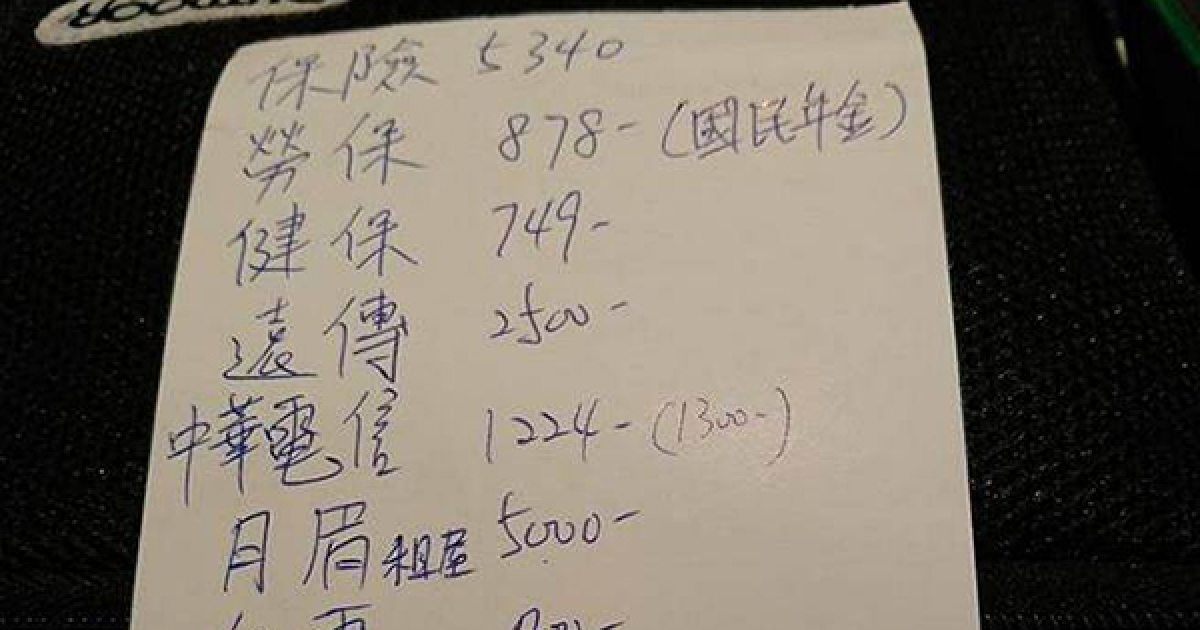 保險 5340
勞保 878-(國民年金)
健保 749-
遠傳 2500-
中華電信 1224-(1300-)
月眉租屋 5000-